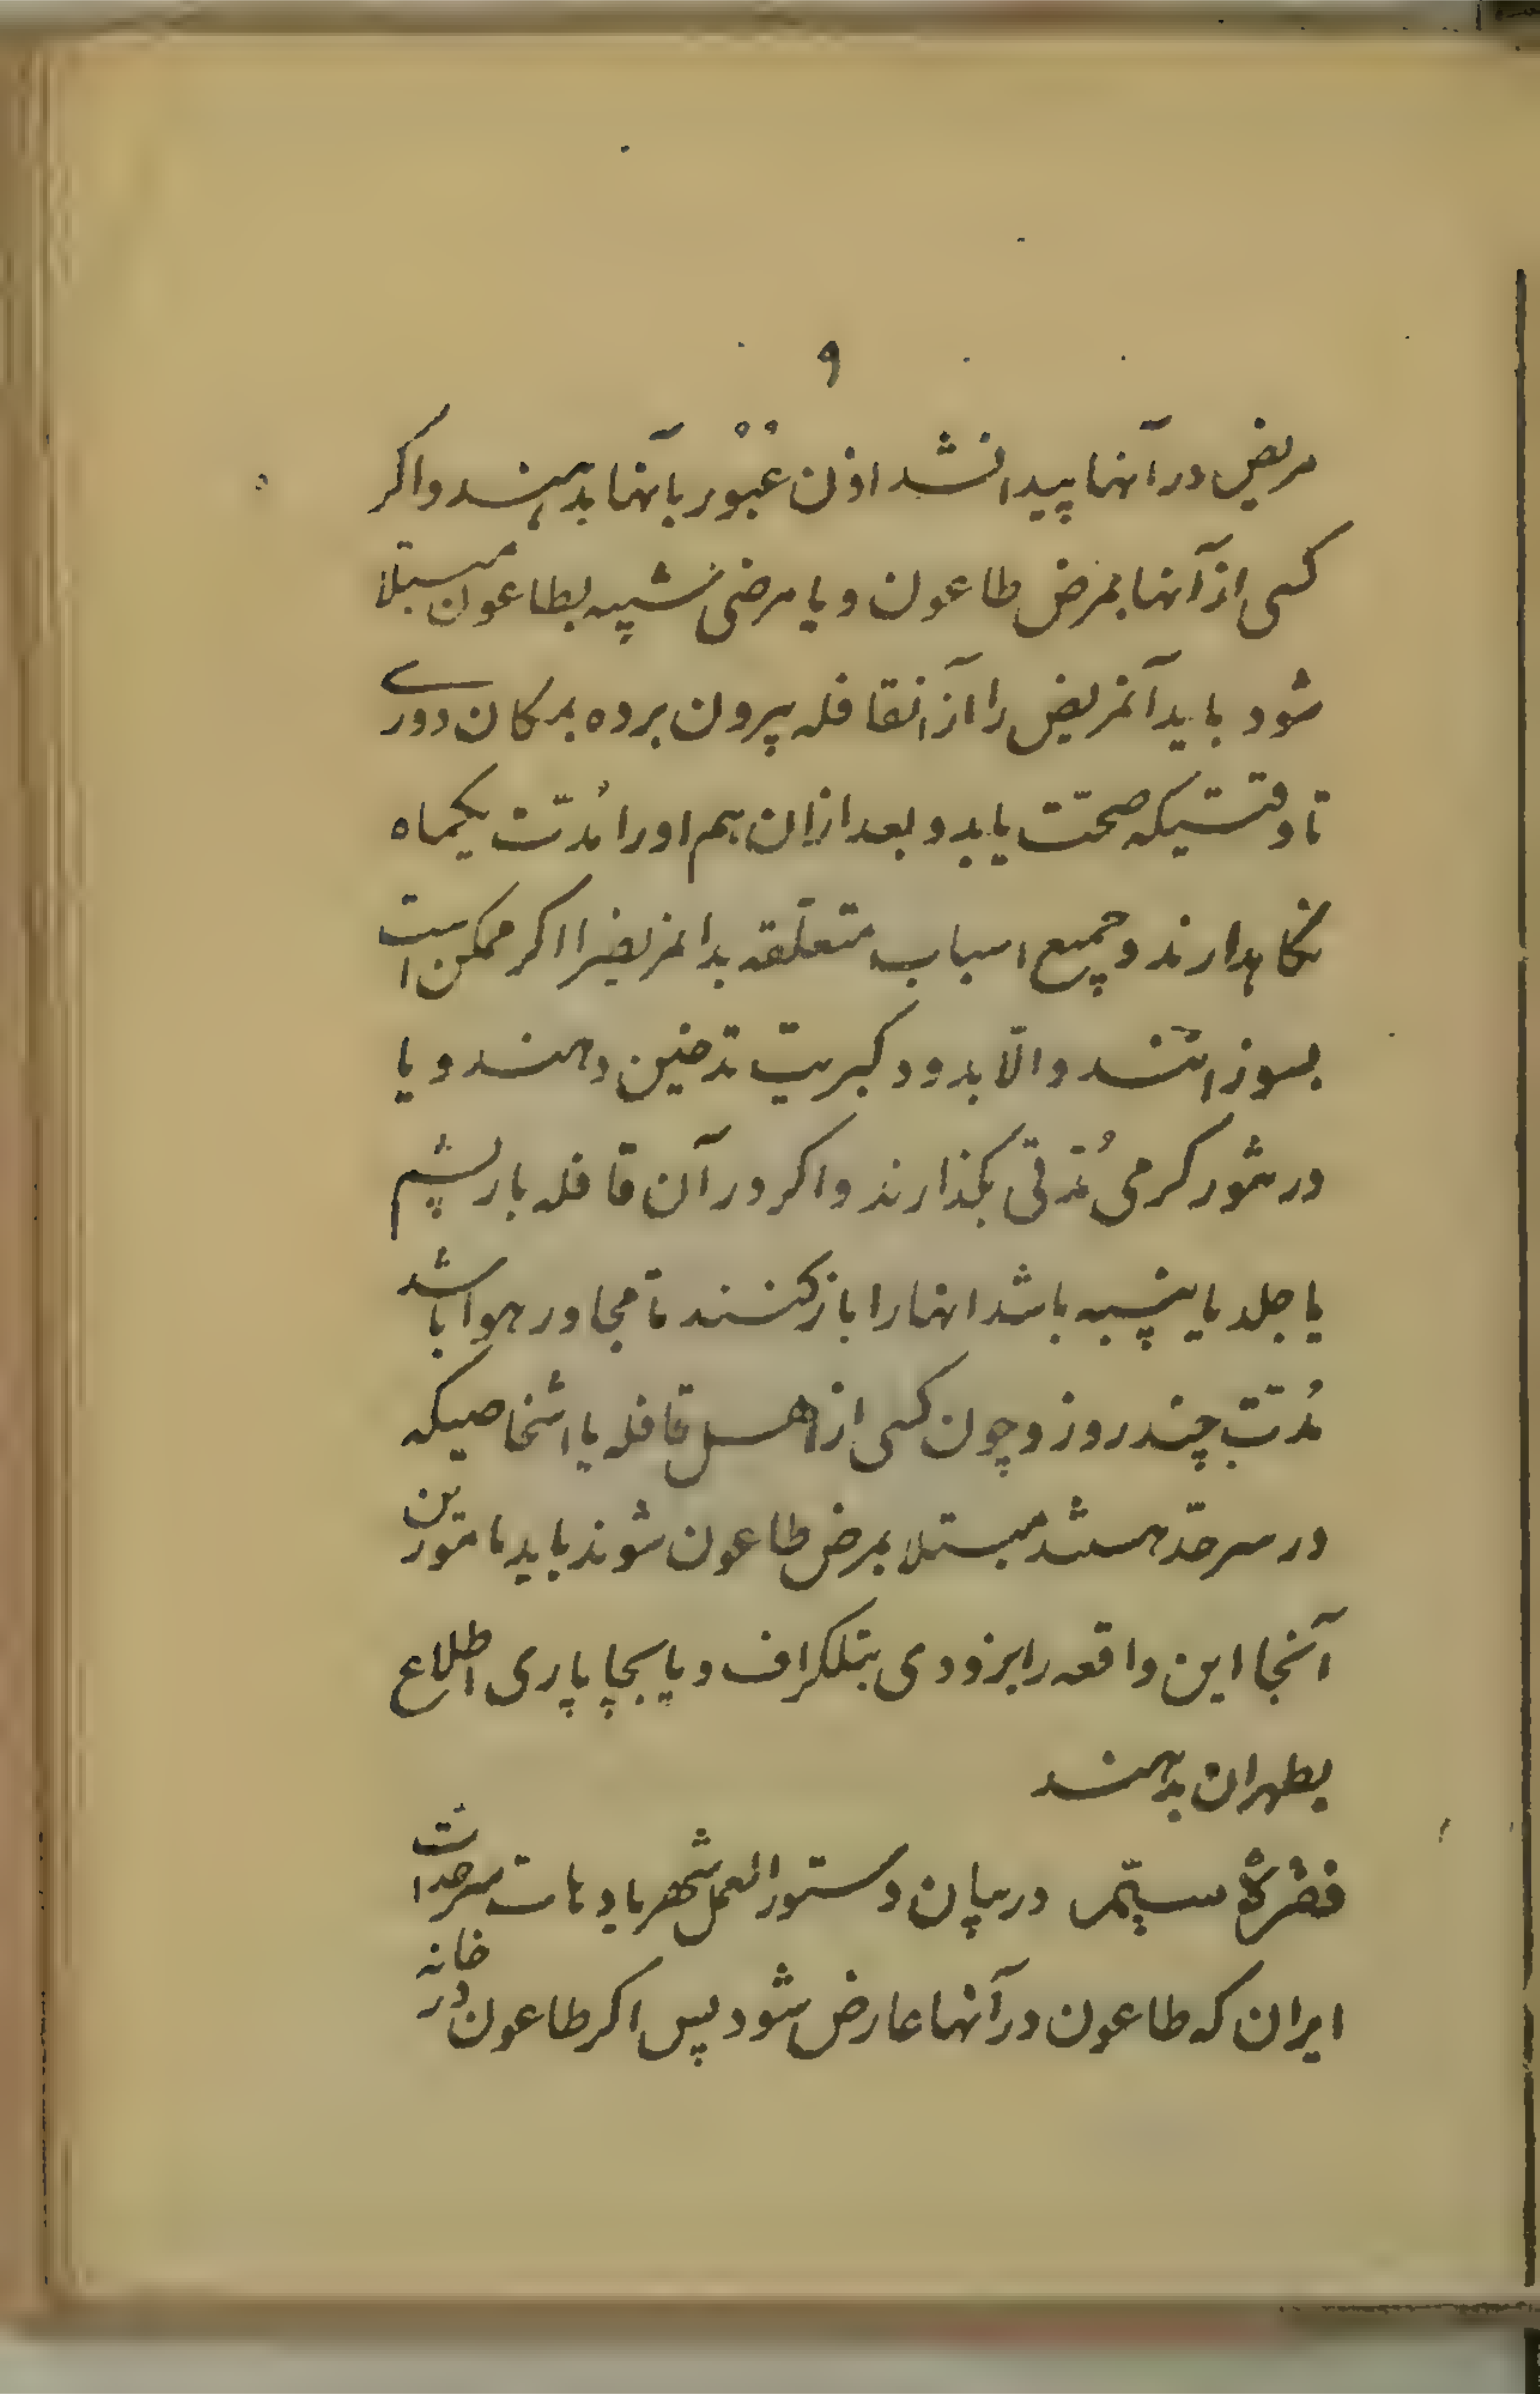 ۹
مریض در آنها پیدا نشد اذن عُبُور بآنها بدهند و اکر
کسی از آنها بمرض طاعون و یا مرضی شبیه بطاعون مبتلا
شود باید آنمریض را از آنقافله بیرون برده بمکان دوری
تا وقتیکه صحّت یابد و بعد از ان هم او را مُدّت یکماه
نکاهدارند و جمیع اسباب متعلّقه بدانمریضرا اکر ممکن است
بسوزانند والّا بدود کبریت تدخین دهند و یا
در شور کرمی مُدّتی بکذارند و اکر در آن قافله بار پشم
یا جلد یا پنبه باشد انها را باز کنند تا مجاور هوا باشد
مُدّت چند روز و چون کسی از اهل قافله یا اشخاصیکه
در سرحدّ هستند مبتلا بمرض طاعون شوند باید مامورین
آنجا این واقعه را بزودی بتلکراف و یا بچاپاری اطلاع
بطهران بدهند
فقرهٔ سیّم در بیان دستورالعمل شهرها و دهات سرحدات
ایران که طاعون در آنها عارض شود پس اکر طاعون در خانه